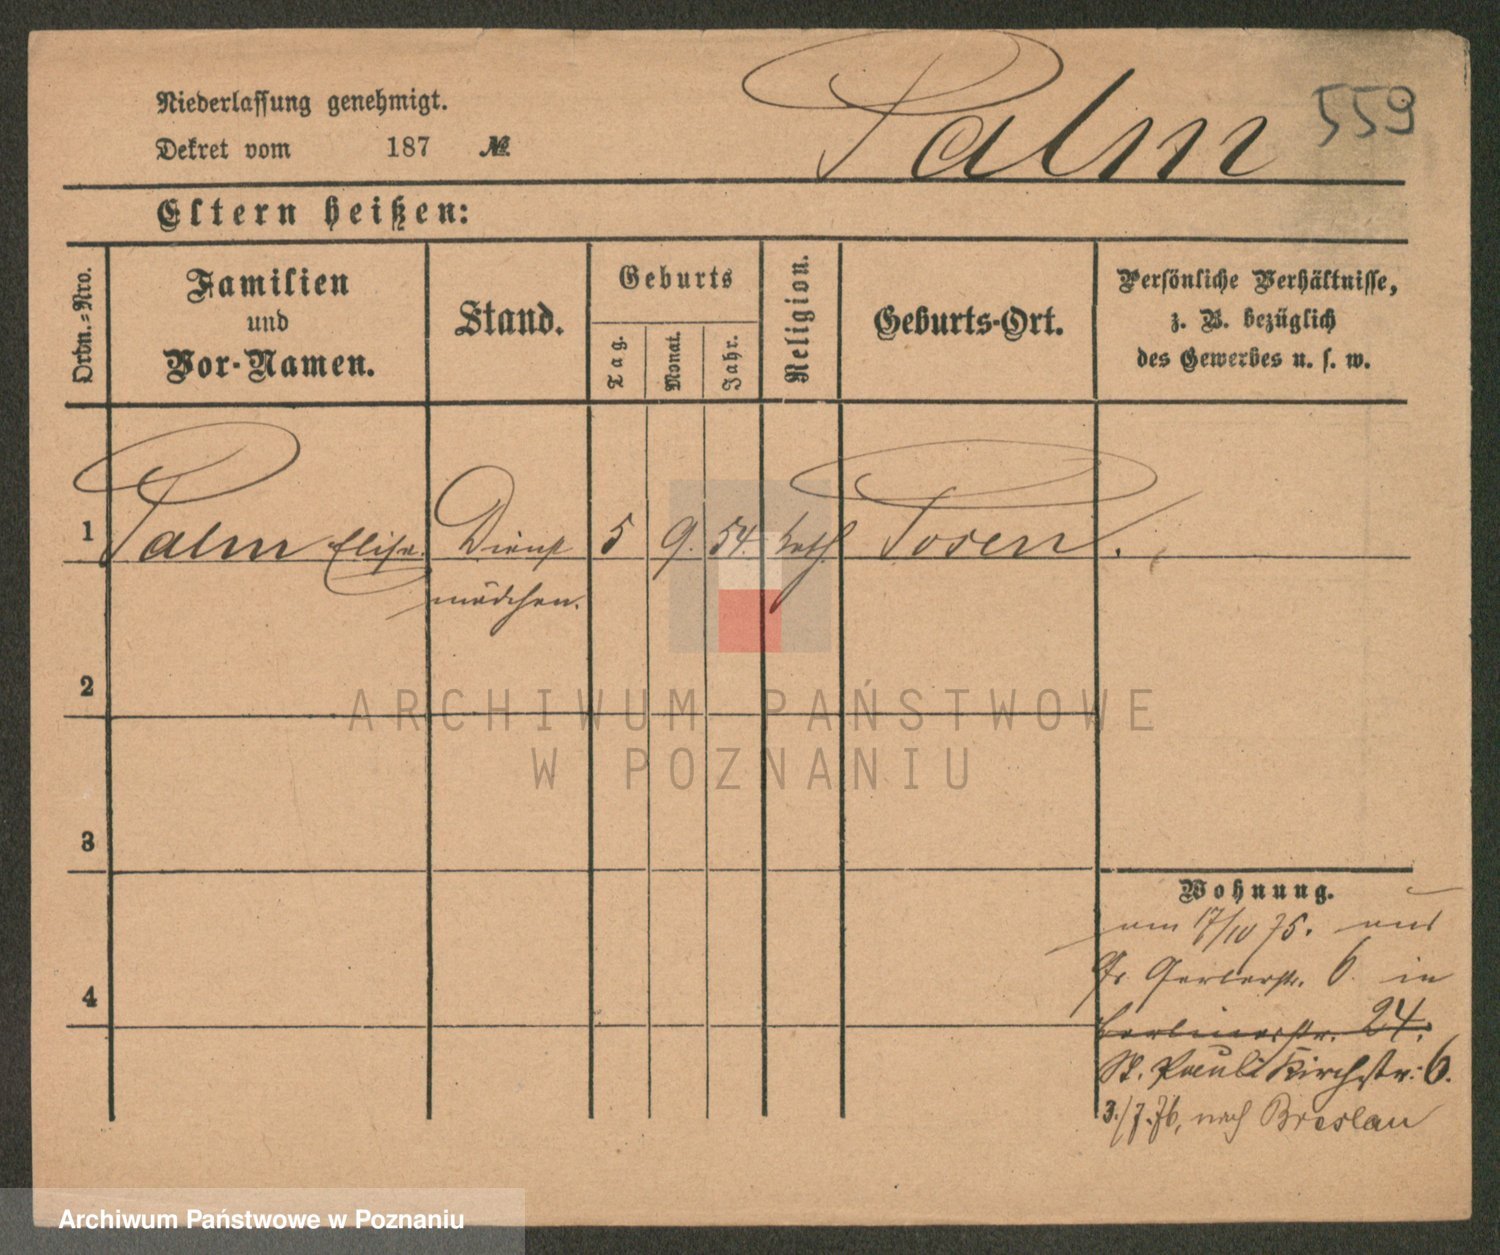 Palm 559
Niederlassung genehmigt.
Dekret vom 187 №
Eltern heißen:
Ordn.-Nro.
Familien
und
Vor-Namen.
Stand.
Geburts
Tag.
Monat.
Jahr.
Religion.
Geburts-Ort.
Persönliche Verhältnisse,
z. B. bezüglich
des Gewerbes u. s. w.
1 Palm Elise. Dienst 5 9. 54. kath. Posen.
mädchen.
2
ARCHIWUM PAŃSTWOWE
W POZNANIU
3
Wohnung.
am 17/10 75. aus
Gr Gerberstr. 6 in
Berlinerstr. 24.
St. Pauli Kirchstr: 6.
3./7.76, nach Breslau
4
Archiwum Państwowe w Poznaniu